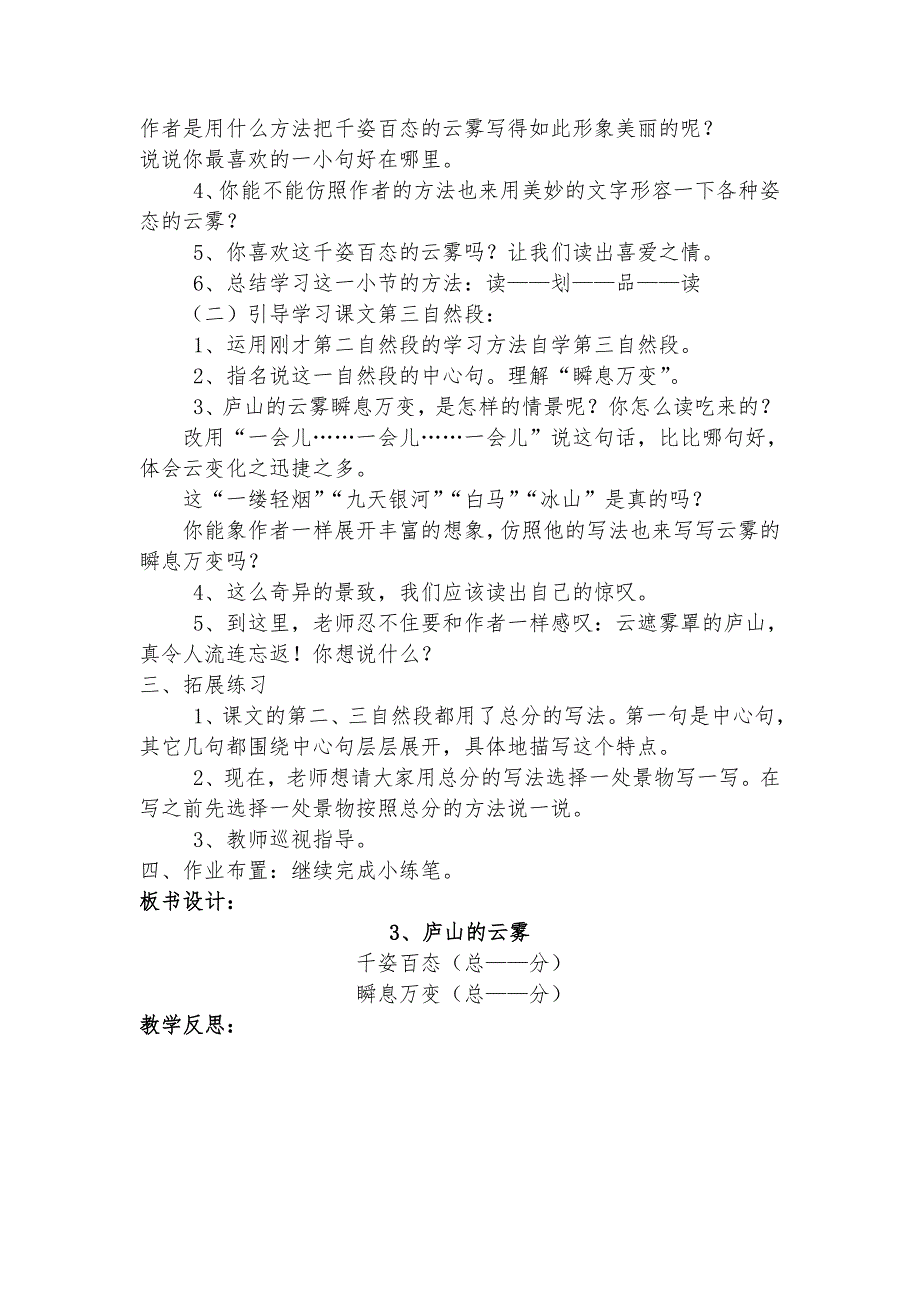 作者是用什么方法把千姿百态的云雾写得如此形象美丽的呢？
说说你最喜欢的一小句好在哪里。
4、你能不能仿照作者的方法也来用美妙的文字形容一下各种姿
态的云雾？
5、你喜欢这千姿百态的云雾吗？让我们读出喜爱之情。
6、总结学习这一小节的方法：读——划——品——读
（二）引导学习课文第三自然段：
1、运用刚才第二自然段的学习方法自学第三自然段。
2、指名说这一自然段的中心句。理解“瞬息万变”。
3、庐山的云雾瞬息万变，是怎样的情景呢？你怎么读吃来的？
改用“一会儿……一会儿……一会儿”说这句话，比比哪句好，
体会云变化之迅捷之多。
这“一缕轻烟”“九天银河”“白马”“冰山”是真的吗？
你能象作者一样展开丰富的想象，仿照他的写法也来写写云雾的
瞬息万变吗？
4、这么奇异的景致，我们应该读出自己的惊叹。
5、到这里，老师忍不住要和作者一样感叹：云遮雾罩的庐山，
真令人流连忘返！你想说什么？
三、拓展练习
1、课文的第二、三自然段都用了总分的写法。第一句是中心句，
其它几句都围绕中心句层层展开，具体地描写这个特点。
2、现在，老师想请大家用总分的写法选择一处景物写一写。在
写之前先选择一处景物按照总分的方法说一说。
3、教师巡视指导。
四、作业布置：继续完成小练笔。
板书设计：
3、庐山的云雾
千姿百态（总——分）
瞬息万变（总——分）
教学反思：